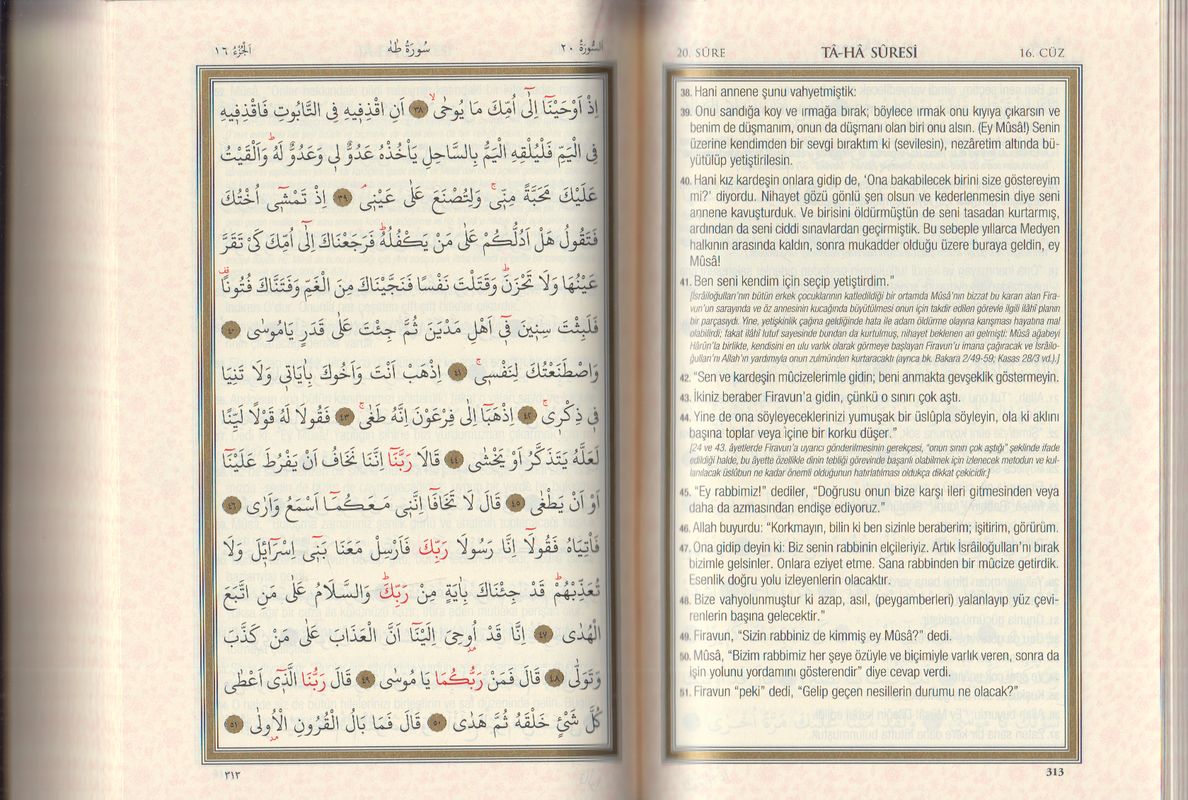 الجزء ١٦
سورة طه
السورة ٢٠
اِذْ اَوْحَيْنَٓا اِلٰٓى اُمِّكَ مَا يُوحٰىۙ ﴿٣٨﴾ اَنِ اقْذِف۪يهِ فِي التَّابُوتِ فَاقْذِف۪يهِ
فِي الْيَمِّ فَلْيُلْقِهِ الْيَمُّ بِالسَّاحِلِ يَأْخُذْهُ عَدُوٌّ ل۪ي وَعَدُوٌّ لَهُۜ وَاَلْقَيْتُ
عَلَيْكَ مَحَبَّةً مِنّ۪يۚ وَلِتُصْنَعَ عَلٰى عَيْن۪يۢ ﴿٣٩﴾ اِذْ تَمْش۪ٓي اُخْتُكَ
فَتَقُولُ هَلْ اَدُلُّكُمْ عَلٰى مَنْ يَكْفُلُهُۜ فَرَجَعْنَاكَ اِلٰٓى اُمِّكَ كَيْ تَقَرَّ
عَيْنُهَا وَلَا تَحْزَنَۜ وَقَتَلْتَ نَفْسًا فَنَجَّيْنَاكَ مِنَ الْغَمِّ وَفَتَنَّاكَ فُتُونًا۠
فَلَبِثْتَ سِن۪ينَ ف۪ٓي اَهْلِ مَدْيَنَ ثُمَّ جِئْتَ عَلٰى قَدَرٍ يَامُوسٰى ﴿٤٠﴾
وَاصْطَنَعْتُكَ لِنَفْس۪يۚ ﴿٤١﴾ اِذْهَبْ اَنْتَ وَاَخُوكَ بِاٰيَات۪ي وَلَا تَنِيَا
ف۪ي ذِكْر۪يۚ ﴿٤٢﴾ اِذْهَبَٓا اِلٰى فِرْعَوْنَ اِنَّهُ طَغٰىۚ ﴿٤٣﴾ فَقُولَا لَهُ قَوْلًا لَيِّنًا
لَعَلَّهُ يَتَذَكَّرُ اَوْ يَخْشٰى ﴿٤٤﴾ قَالَا رَبَّنَٓا اِنَّنَا نَخَافُ اَنْ يَفْرُطَ عَلَيْنَٓا
اَوْ اَنْ يَطْغٰى ﴿٤٥﴾ قَالَ لَا تَخَافَٓا اِنَّن۪ي مَعَكُمَٓا اَسْمَعُ وَاَرٰى ﴿٤٦﴾
فَأْتِيَاهُ فَقُولَٓا اِنَّا رَسُولَا رَبِّكَ فَاَرْسِلْ مَعَنَا بَن۪ٓي اِسْرَٓائ۪لَ وَلَا
تُعَذِّبْهُمْۜ قَدْ جِئْنَاكَ بِاٰيَةٍ مِنْ رَبِّكَۜ وَالسَّلَامُ عَلٰى مَنِ اتَّبَعَ
الْهُدٰى ﴿٤٧﴾ اِنَّا قَدْ اُو۫حِيَ اِلَيْنَٓا اَنَّ الْعَذَابَ عَلٰى مَنْ كَذَّبَ
وَتَوَلّٰى ﴿٤٨﴾ قَالَ فَمَنْ رَبُّكُمَا يَا مُوسٰى ﴿٤٩﴾ قَالَ رَبُّنَا الَّذ۪ٓي اَعْطٰى
كُلَّ شَيْءٍ خَلْقَهُ ثُمَّ هَدٰى ﴿٥٠﴾ قَالَ فَمَا بَالُ الْقُرُونِ الْاُو۫لٰى ﴿٥١﴾
٣١٣
20. SÛRE
TÂ-HÂ SÛRESİ
16. CÜZ
38. Hani annene şunu vahyetmiştik:
39. Onu sandığa koy ve ırmağa bırak; böylece ırmak onu kıyıya çıkarsın ve
benim de düşmanım, onun da düşmanı olan biri onu alsın. (Ey Mûsâ!) Senin
üzerine kendimden bir sevgi bıraktım ki (sevilesin), nezâretim altında bü-
yütülüp yetiştirilesin.
40. Hani kız kardeşin onlara gidip de, ‘Ona bakabilecek birini size göstereyim
mi?’ diyordu. Nihayet gözü gönlü şen olsun ve kederlenmesin diye seni
annene kavuşturduk. Ve birisini öldürmüştün de seni tasadan kurtarmış,
ardından da seni ciddi sınavlardan geçirmiştik. Bu sebeple yıllarca Medyen
halkının arasında kaldın, sonra mukadder olduğu üzere buraya geldin, ey
Mûsâ!
41. Ben seni kendim için seçip yetiştirdim.”
[İsrâiloğulları’nın bütün erkek çocuklarının katledildiği bir ortamda Mûsâ’nın bizzat bu kararı alan Fira-
vun’un sarayında ve öz annesinin kucağında büyütülmesi onun için takdir edilen görevle ilgili ilâhî planın
bir parçasıydı. Yine, yetişkinlik çağına geldiğinde hata ile adam öldürme olayına karışması hayatına mal
olabilirdi; fakat ilâhî lutuf sayesinde bundan da kurtulmuş, nihayet beklenen an gelmişti: Mûsâ ağabeyi
Hârûn’la birlikte, kendisini en ulu varlık olarak görmeye başlayan Firavun’u imana çağıracak ve İsrâilo-
ğulları’nı Allah’ın yardımıyla onun zulmünden kurtaracaktı (ayrıca bk. Bakara 2/49-59; Kasas 28/3 vd.).]
42. “Sen ve kardeşin mûcizelerimle gidin; beni anmakta gevşeklik göstermeyin.
43. İkiniz beraber Firavun’a gidin, çünkü o sınırı çok aştı.
44. Yine de ona söyleyeceklerinizi yumuşak bir üslûpla söyleyin, ola ki aklını
başına toplar veya içine bir korku düşer.”
[24 ve 43. âyetlerde Firavun’a uyarıcı gönderilmesinin gerekçesi, “onun sınırı çok aştığı” şeklinde ifade
edildiği halde, bu âyette özellikle dinin tebliği görevinde başarılı olabilmek için izlenecek metodun ve kul-
lanılacak üslûbun ne kadar önemli olduğunun hatırlatılması oldukça dikkat çekicidir.]
45. “Ey rabbimiz!” dediler, “Doğrusu onun bize karşı ileri gitmesinden veya
daha da azmasından endişe ediyoruz.”
46. Allah buyurdu: “Korkmayın, bilin ki ben sizinle beraberim; işitirim, görürüm.
47. Ona gidip deyin ki: Biz senin rabbinin elçileriyiz. Artık İsrâiloğulları’nı bırak
bizimle gelsinler. Onlara eziyet etme. Sana rabbinden bir mûcize getirdik.
Esenlik doğru yolu izleyenlerin olacaktır.
48. Bize vahyolunmuştur ki azap, asıl, (peygamberleri) yalanlayıp yüz çevi-
renlerin başına gelecektir.”
49. Firavun, “Sizin rabbiniz de kimmiş ey Mûsâ?” dedi.
50. Mûsâ, “Bizim rabbimiz her şeye özüyle ve biçimiyle varlık veren, sonra da
işin yolunu yordamını gösterendir” diye cevap verdi.
51. Firavun “peki” dedi, “Gelip geçen nesillerin durumu ne olacak?”
313